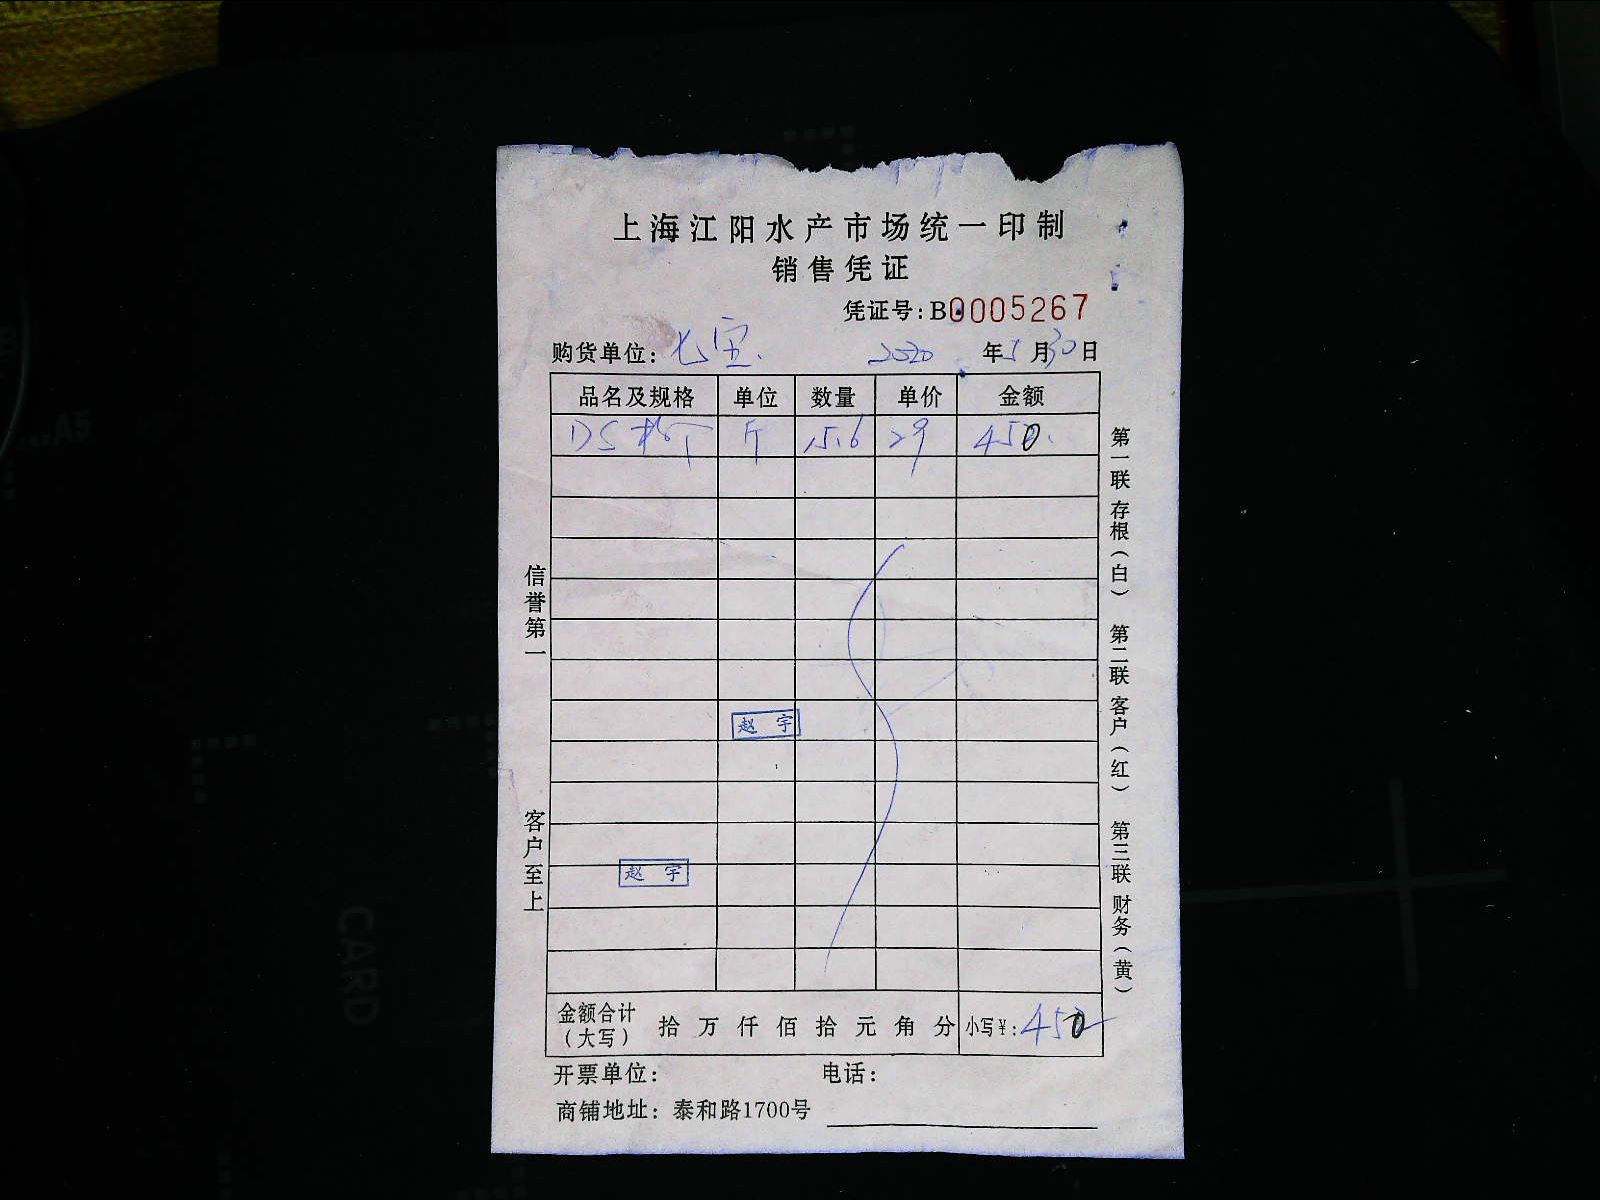 上海江阳水产市场统一印制
销售凭证
凭证号:B0005267
购货单位: 七宝. 2020 年5月30日
品名及规格 单位 数量 单价 金额
DS 斤 15.6 29 450.
赵宇
赵宇
金额合计(大写) 拾万仟佰拾元角分 小写¥: 450
开票单位: 电话:
商铺地址: 泰和路1700号
信誉第一
客户至上
第一联 存根(白) 第二联 客户(红) 第三联 财务(黄)
A5
CARD